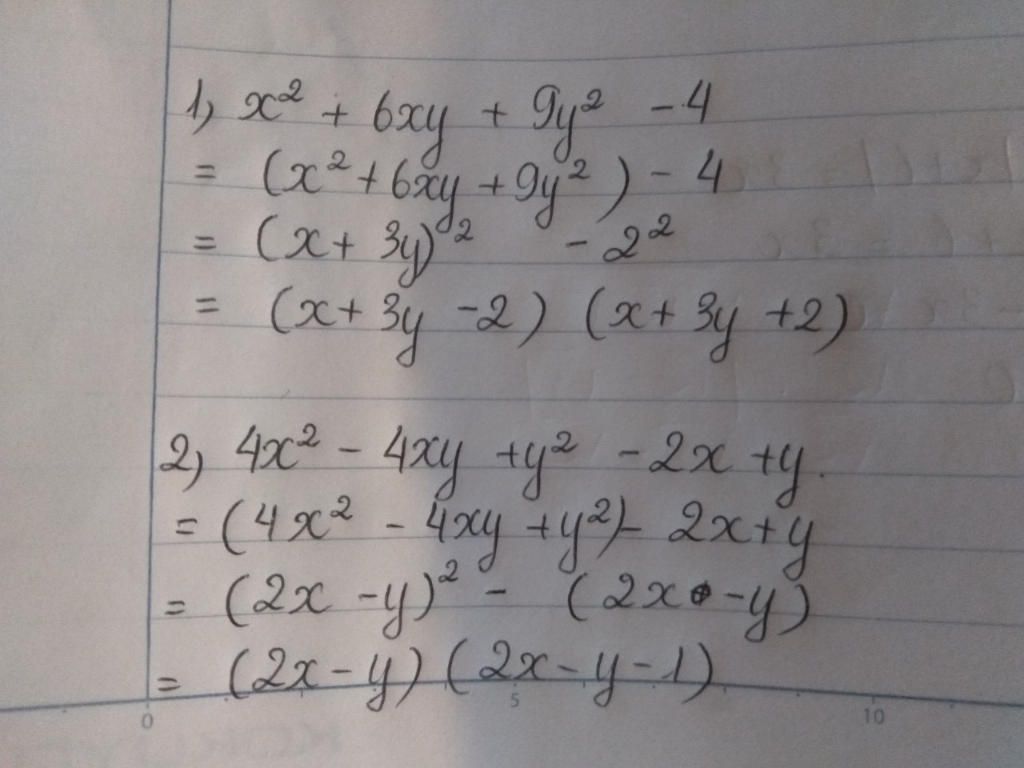 1) x² + 6xy + 9y² - 4
= (x² + 6xy + 9y²) - 4
= (x + 3y)² - 2²
= (x + 3y - 2) (x + 3y + 2)
2) 4x² - 4xy + y² - 2x + y.
= (4x² - 4xy + y²) - 2x + y
= (2x - y)² - (2x - y)
= (2x - y) (2x - y - 1)
0 5 10